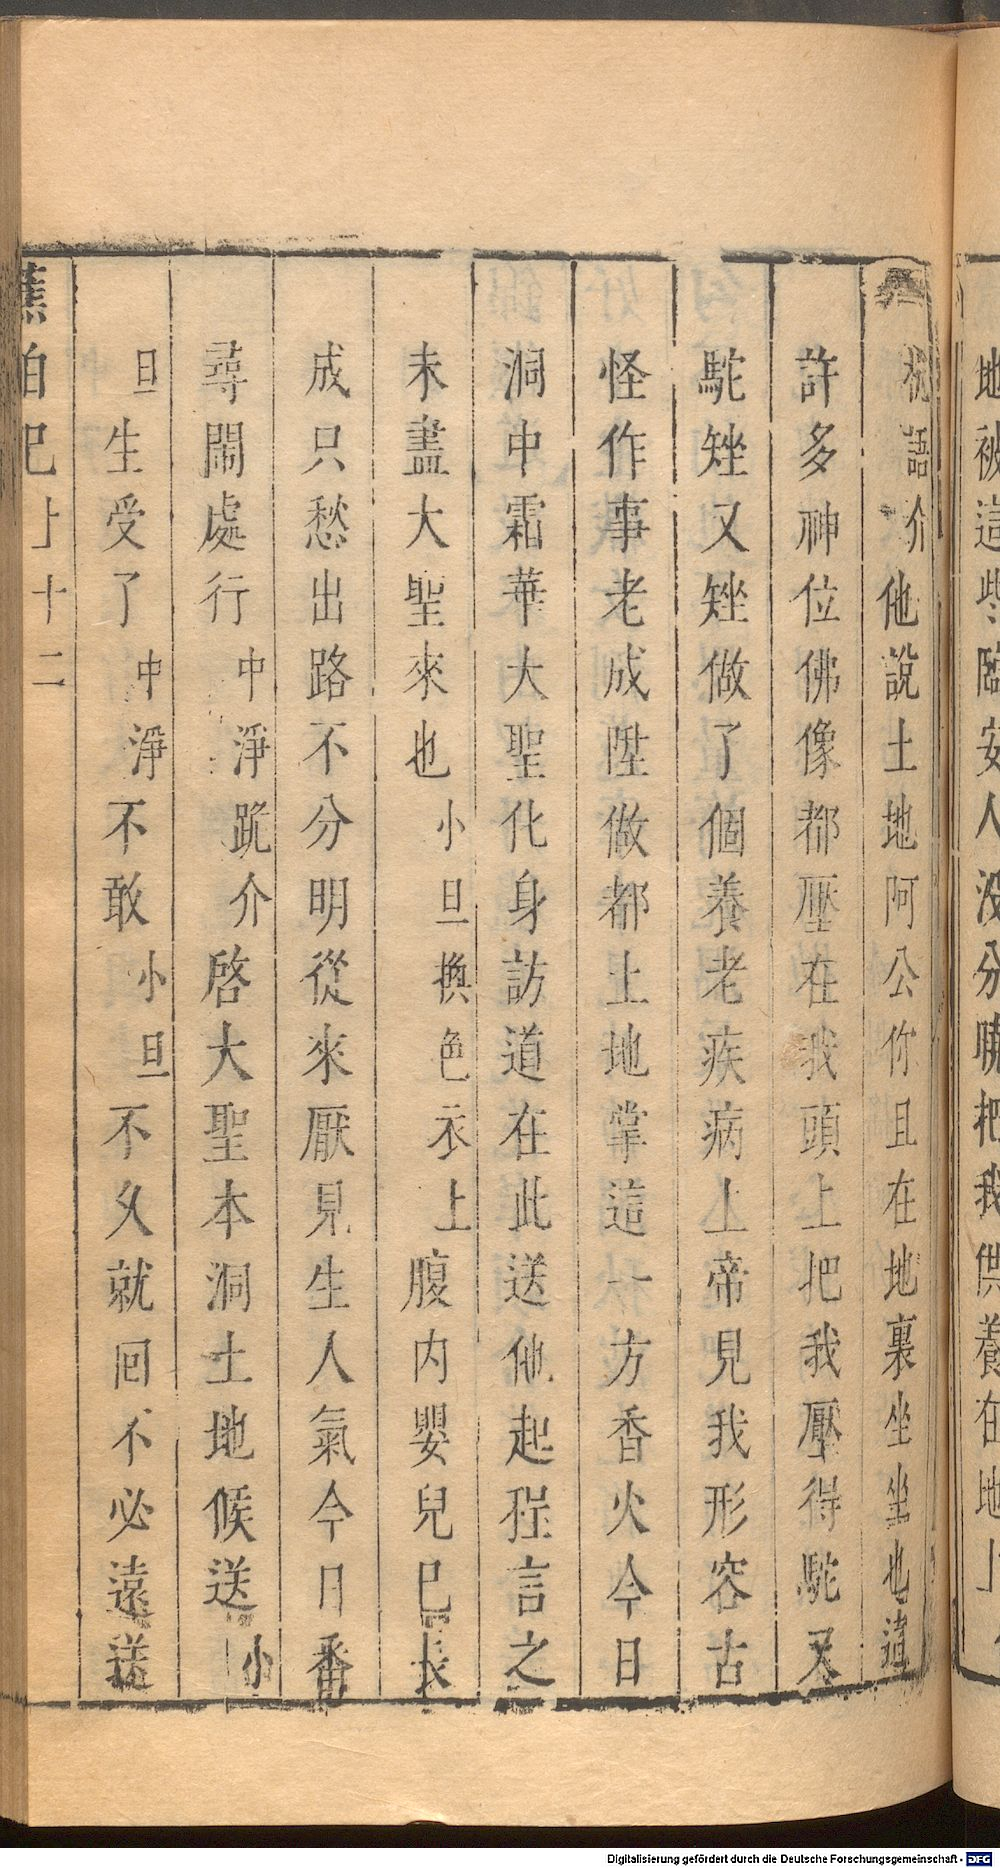 地被這些臨安人沒分曉把我供養在地上
祝語介他說土地阿公你且在地裏坐坐也這
許多神位佛像都壓在我頭上把我壓得駝又
駝矬又矬做了個養老疾病上帝見我形容古
怪作事老成陞做都土地掌這一方香火今日
洞中霜華大聖化身訪道在此送他起程言之
未盡大聖來也小旦換色衣上腹內嬰兒已長
成只愁出路不分明從來厭見生人氣今日番
尋鬧處行中淨跪介啓大聖本洞土地候送小
旦生受了中淨不敢小旦不久就回不必遠送
蕉帕記上十二
Digitalisierung gefördert durch die Deutsche Forschungsgemeinschaft - DFG